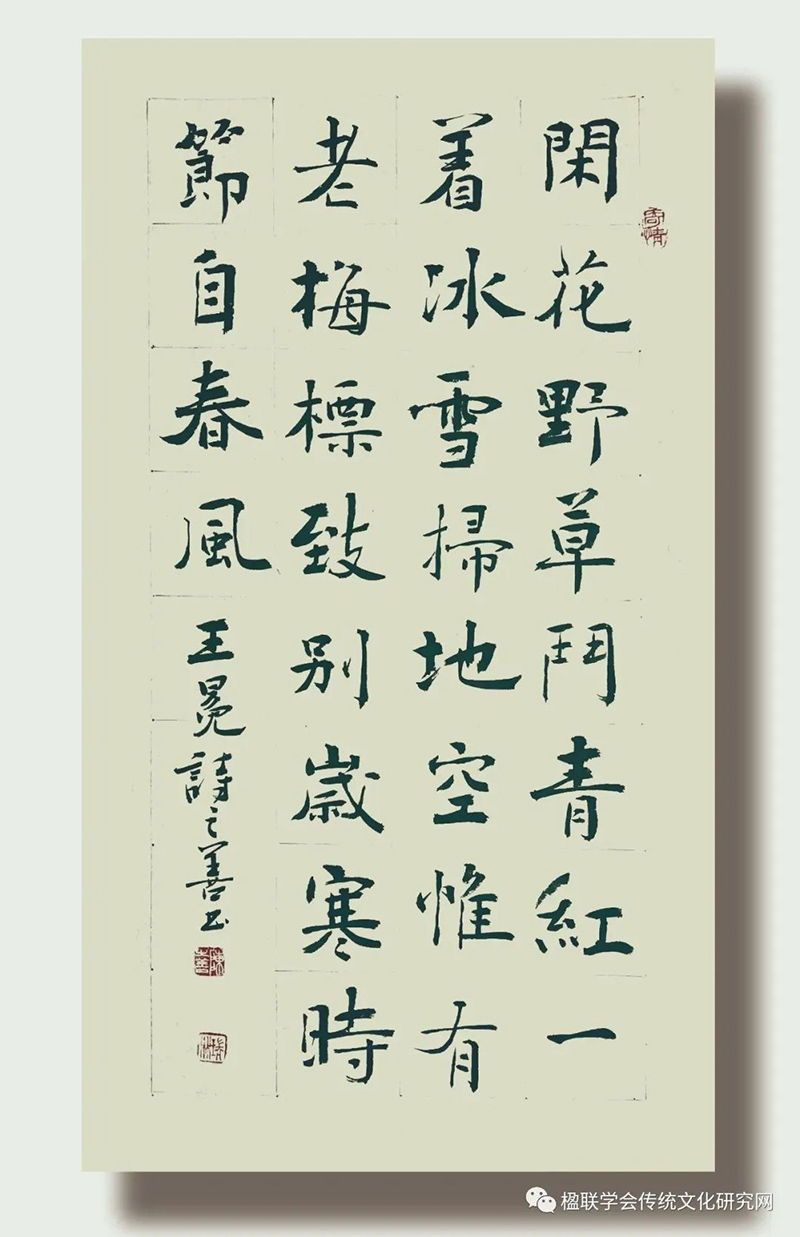 閑花野草鬥青紅一
着冰雪掃地空惟有
老梅標致别歲寒時
節自春風
王冕詩之善书
楹联学会传统文化研究网